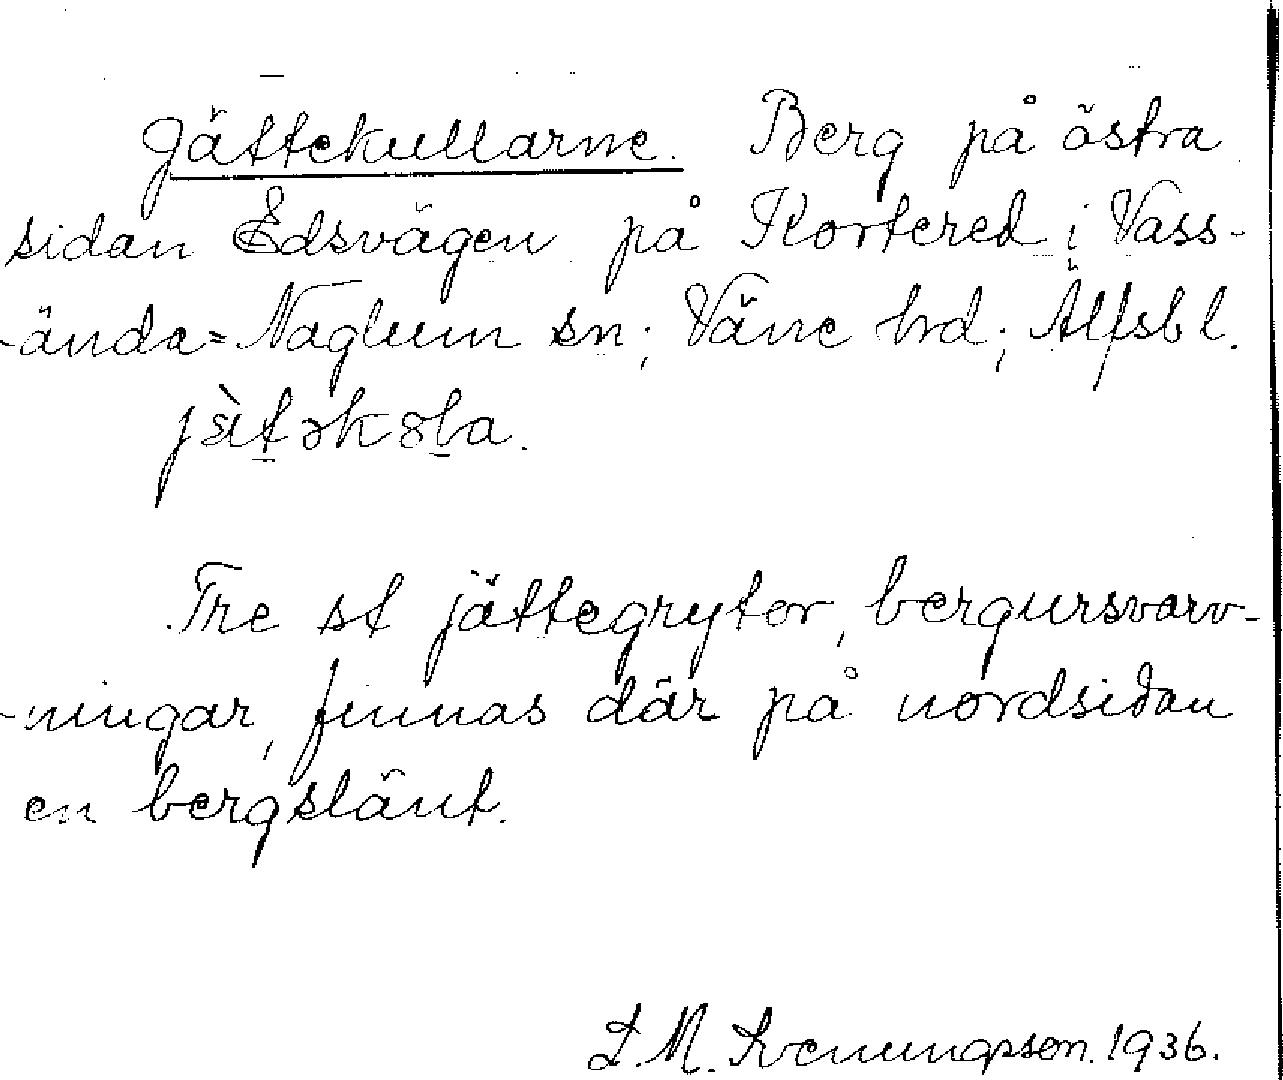 Jättekullarne. Berg på östra
sidan Edsvägen på Kortered i Vass-
-ända=Naglum sn; Väne hrd; Älfsb l.
Tre st jättegrytor, bergursvarv-
-ningar, finnas där på nordsidan
en bergslänt.
L. M. Svenungsson. 1936.